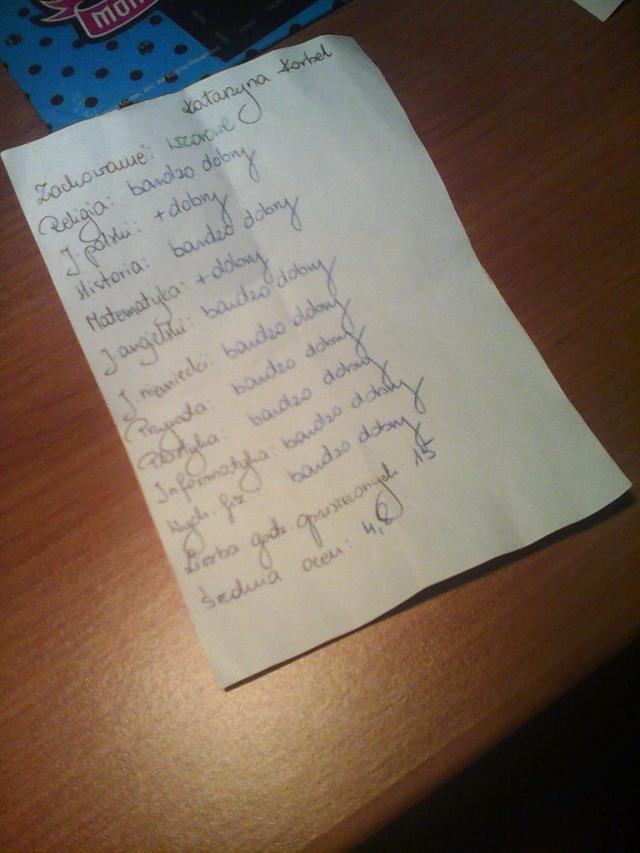 MON
Katarzyna Korbel
Zachowanie: wzorowe
Religia: bardzo dobry
J. polski: +dobry
Historia: bardzo dobry
Matematyka: +dobry
J angielski: bardzo dobry
J. niemiecki: bardzo dobry
Przyroda: bardzo dobry
Plastyka: bardzo dobry
Informatyka: bardzo dobry
Wych. fiz bardzo dobry
Liczba godz. opuszczonych 15
Średnia ocen: 4,8